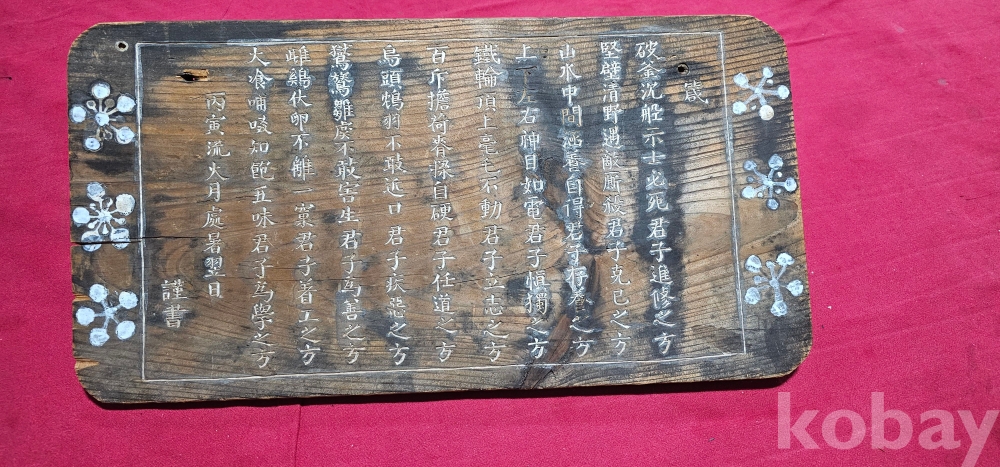 箴
破釜沉船示士必死君子進修之方
堅壁清野遇敵廝殺君子克己之方
山水中間涵蓄自得君子存養之方
上下左右神目如電君子愼獨之方
鐵輪頂上毫毛不動君子立志之方
百斤擔荷脊樑自硬君子任道之方
烏頭鴆羽不敢近口君子疾惡之方
雛虞不敢害生君子為善之方
雌鷄伏卵不離一窠君子着工之方
大飡哺啜知飽五味君子為學之方
丙寅流火月處暑翌日
謹書
kobay